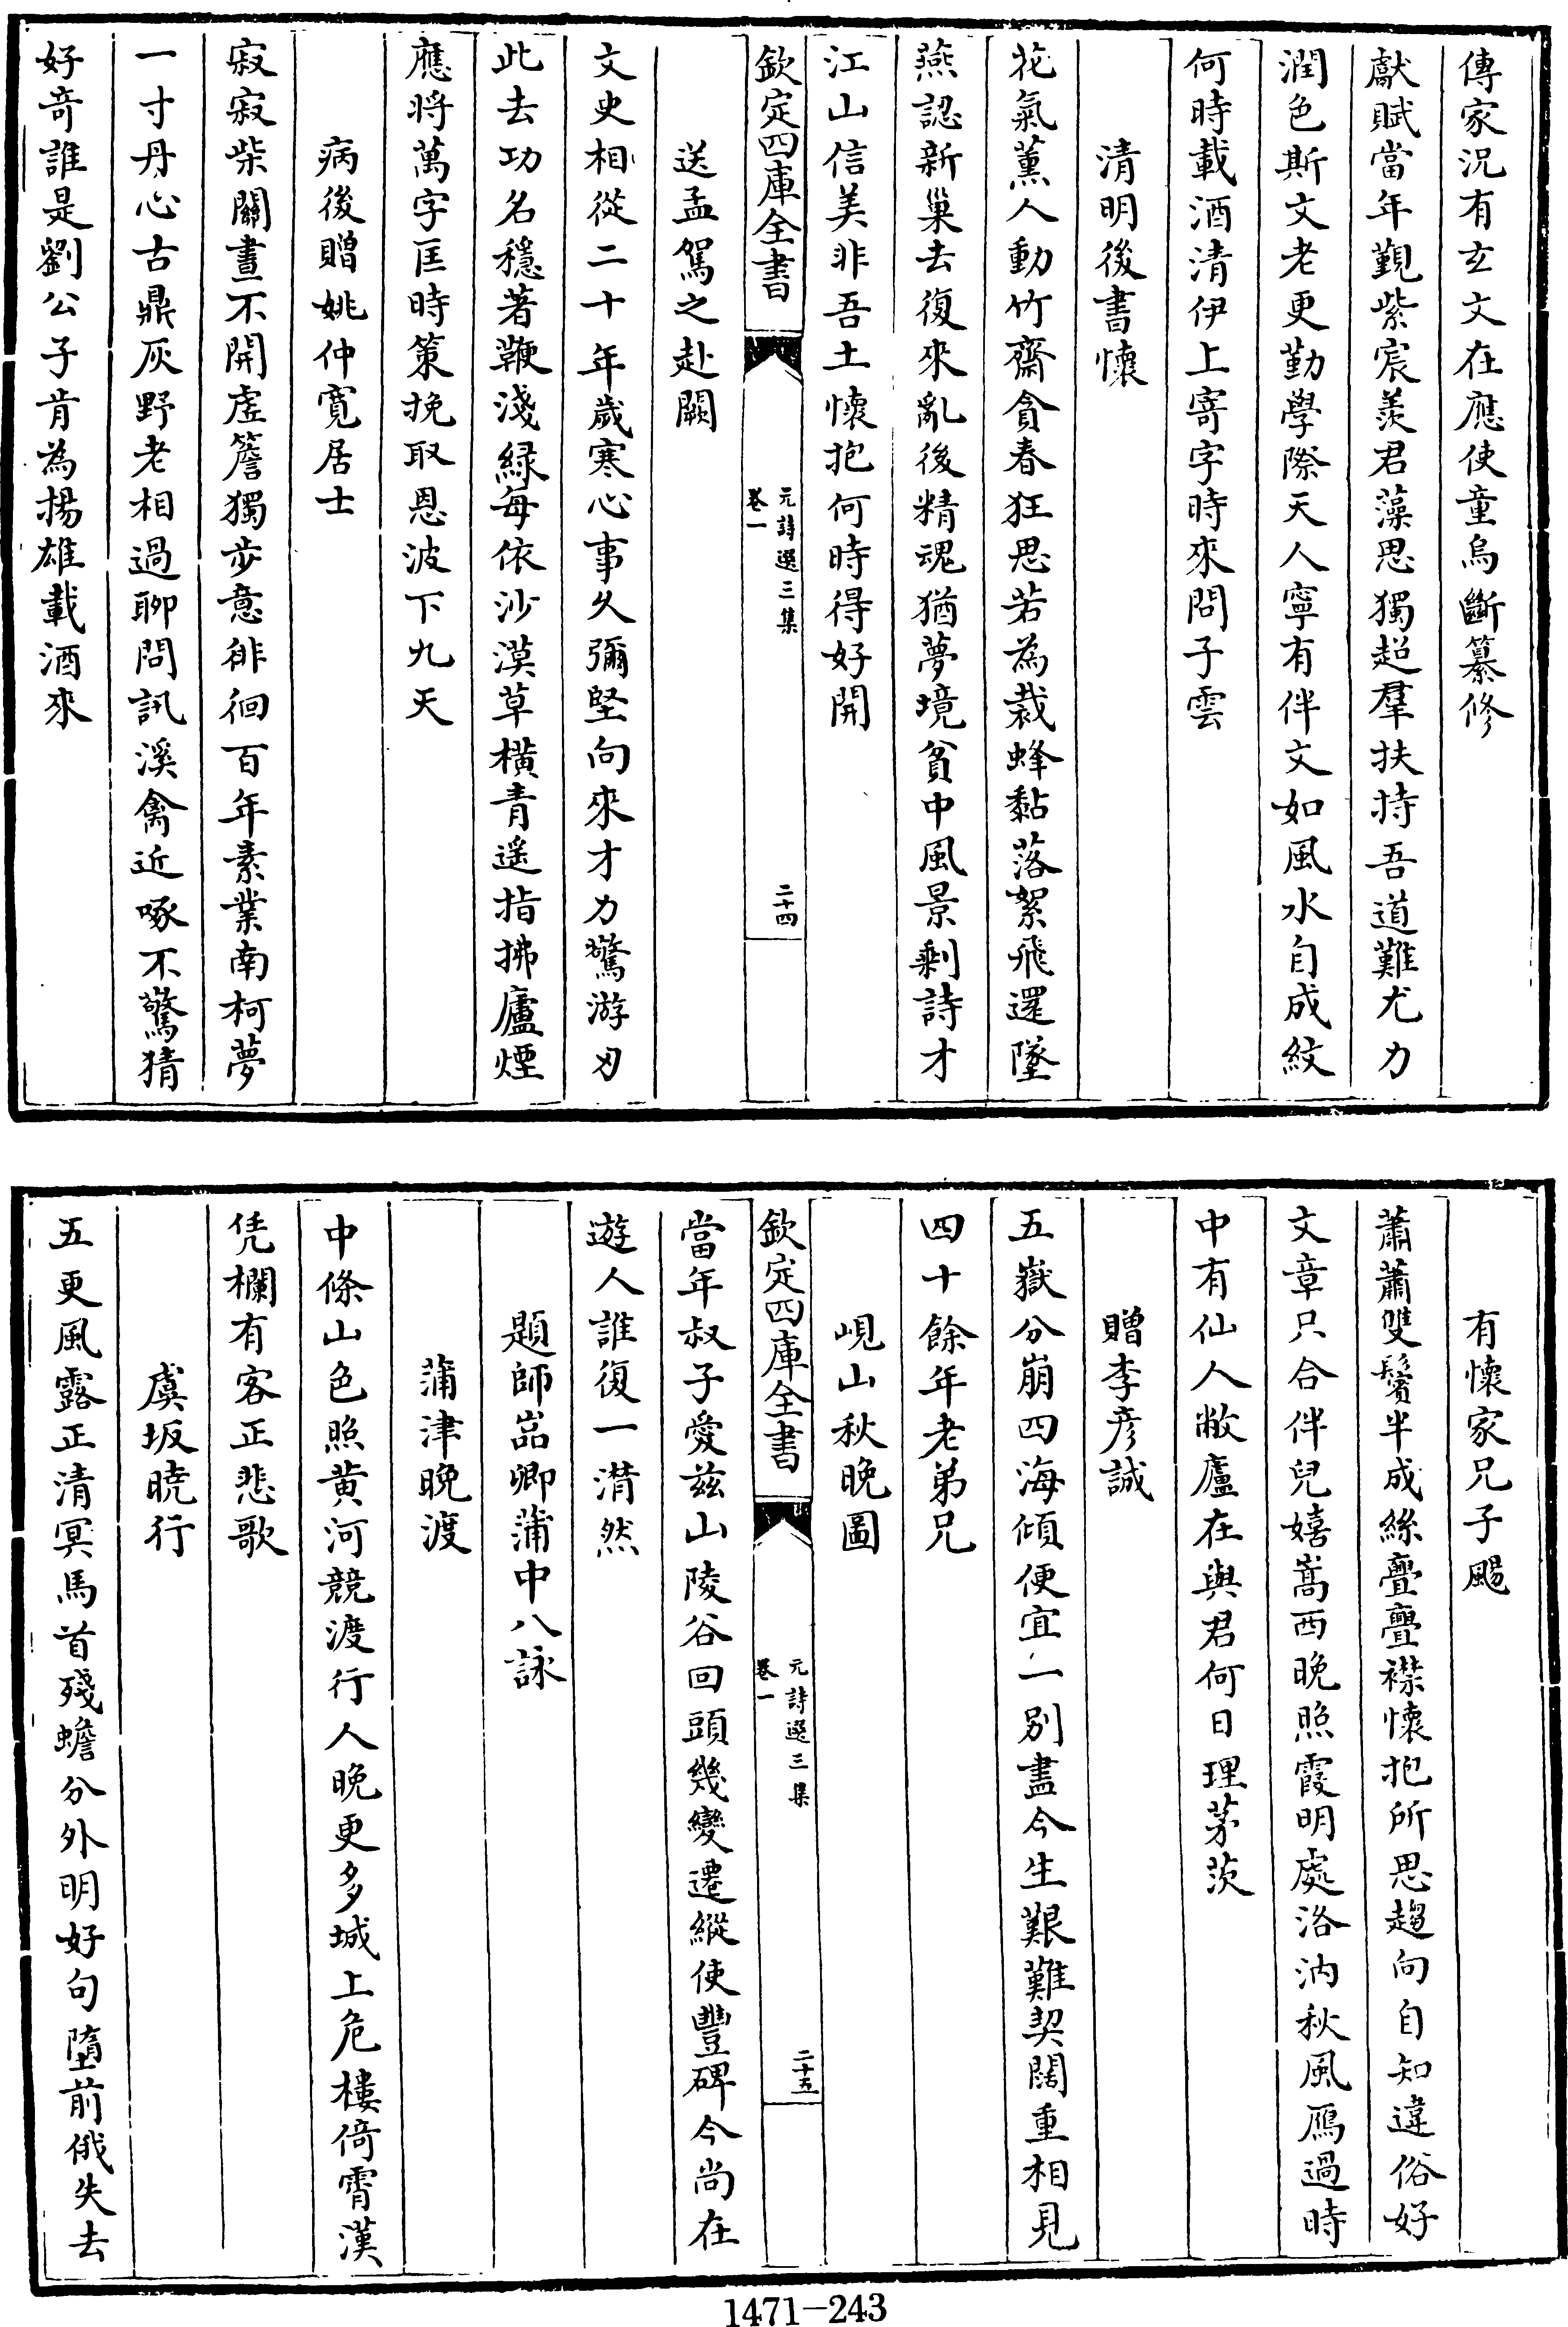 傳家況有玄文在應使童烏斷纂修
獻賦當年覲紫宸羨君藻思獨超羣扶持吾道難尤力
潤色斯文老更勤學際天人寧有伴文如風水自成紋
何時載酒清伊上寄字時來問子雲
清明後書懷
花氣薰人動竹齋貪春狂思若為裁蜂黏落絮飛還墜
燕認新巢去復來亂後精魂猶夢境貧中風景剩詩才
江山信美非吾土懷抱何時得好開
欽定四庫全書
元詩選三集
卷一
二十四
送孟駕之赴闕
文史相從二十年歲寒心事久彌堅向來才力驚游刃
此去功名穩著鞭淺綠每依沙漠草橫青遥指拂廬煙
應將萬字匡時策挽取恩波下九天
病後贈姚仲寬居士
寂寂柴關晝不開虛簷獨步意徘徊百年素業南柯夢
一寸丹心古鼎灰野老相過聊問訊溪禽近啄不驚猜
好奇誰是劉公子肯為揚雄載酒來
有懷家兄子颺
蕭蕭雙鬢半成絲亹亹襟懷抱所思趨向自知違俗好
文章只合伴兒嬉嵩西晚照霞明處洛汭秋風鴈過時
中有仙人敝廬在與君何日理茅茨
贈李彥誠
五嶽分崩四海傾便宜一別盡今生艱難契闊重相見
四十餘年老弟兄
峴山秋晚圖
欽定四庫全書
元詩選三集
卷一
二十五
當年叔子愛兹山陵谷回頭幾變遷縱使豐碑今尚在
遊人誰復一潸然
題師嵒卿蒲中八詠
蒲津晚渡
中條山色照黄河競渡行人晚更多城上危樓倚霄漢
凭欄有客正悲歌
虞坂曉行
五更風露正清冥馬首殘蟾分外明好句墮前俄失去
1471-243